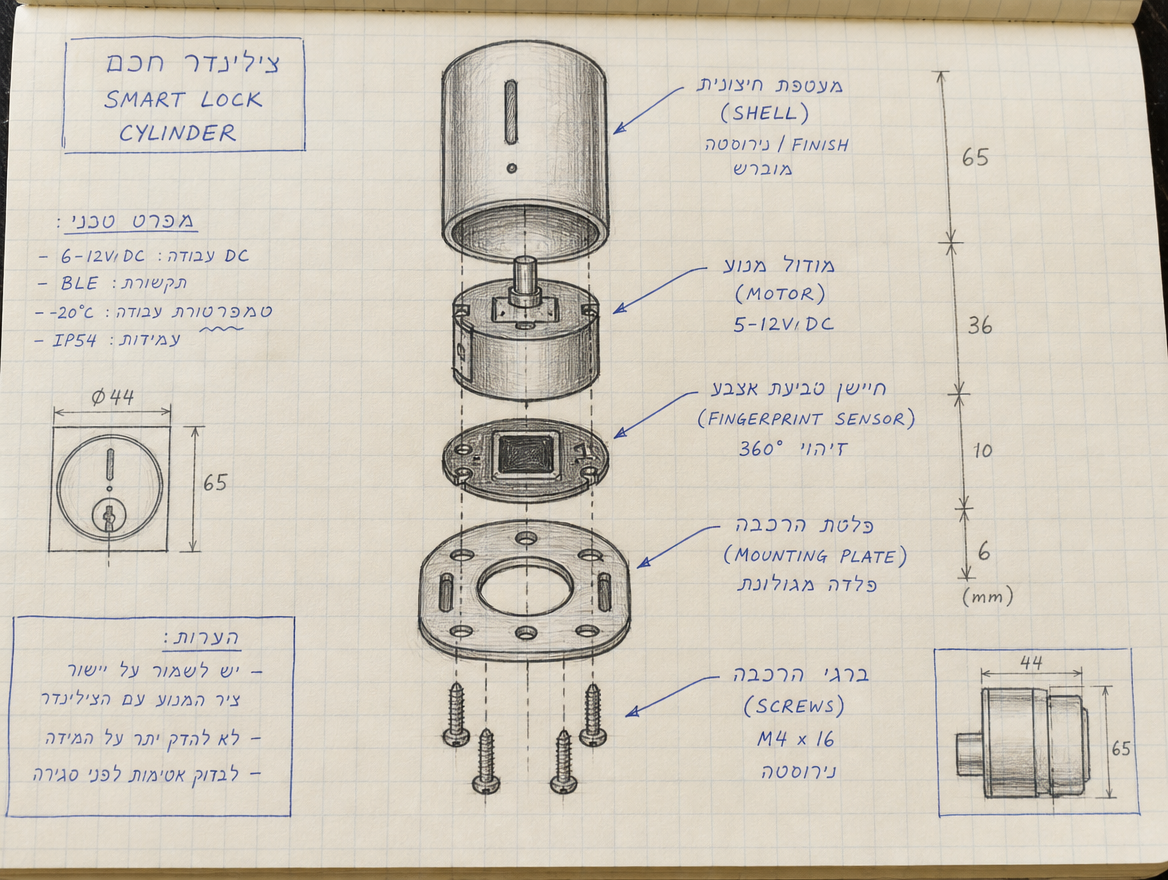 צילינדר חכם
SMART LOCK
CYLINDER
מפרט טכני:
– 6-12V, DC : עבודה DC
– BLE : תקשורת
– -20°C : טמפרטורת עבודה
– IP54 : עמידות
Ø44
65
הערות:
– יש לשמור על יישור
ציר המנוע עם הצילינדר
– לא להדק יתר על המידה
– לבדוק אטימות לפני סגירה
מעטפת חיצונית
(SHELL)
נירוסטה / FINISH
מוברש
מודול מנוע
(MOTOR)
5-12V, DC
חיישן טביעת אצבע
(FINGERPRINT SENSOR)
זיהוי 360°
פלטת הרכבה
(MOUNTING PLATE)
פלדה מגולוונת
ברגי הרכבה
(SCREWS)
M4 x 16
נירוסטה
65
36
10
6
(mm)
44
65